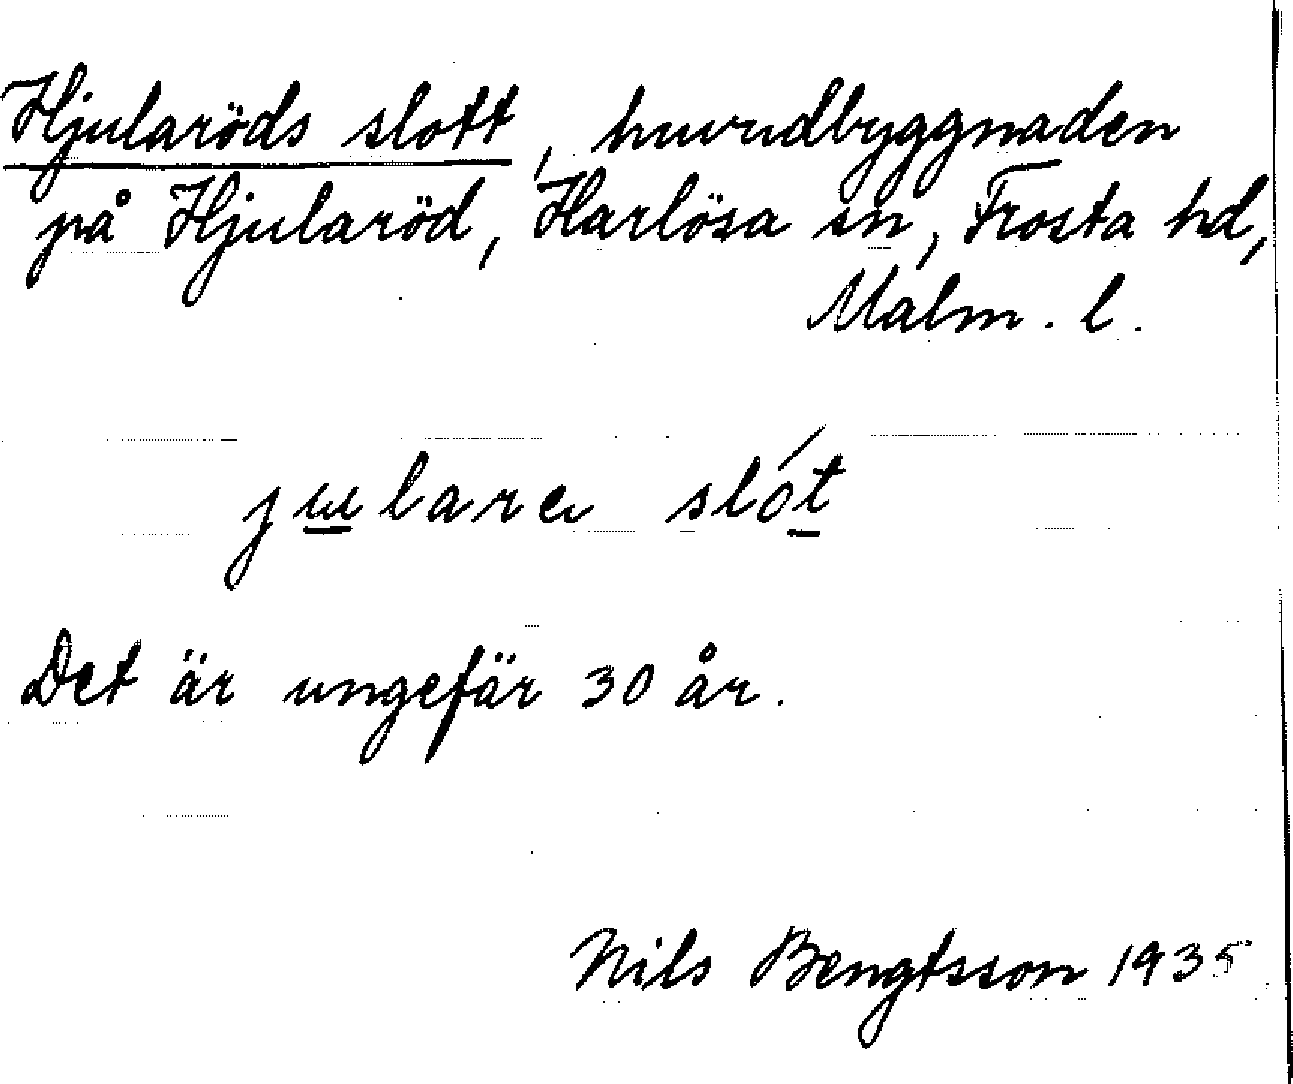 Hjularöds slott, huvudbyggnaden
på Hjularöd, Harlösa sn, Frosta hd,
Malm. l.
jɯlarə slót
Det är ungefär 30 år.
Nils Bengtsson 1935